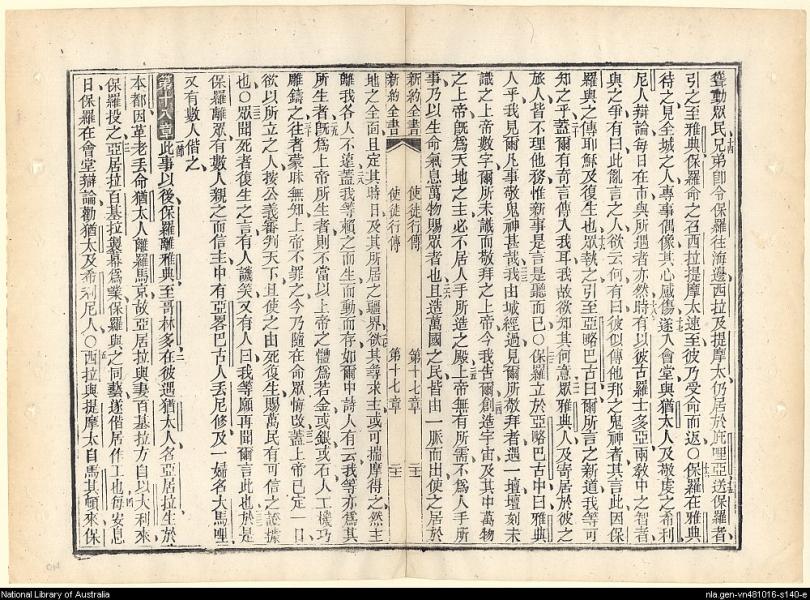 聳動眾民兄弟卽令保羅往海邊西拉及提摩太仍居於庇哩亞送保羅者
引之至雅典保羅命之召西拉提摩太速至彼乃受命而返○保羅在雅典
待之見全城之人專事偶像其心感傷遂入會堂與猶太人及敬虔之希利
尼人辯論每日在市與所遇者亦然時有以彼古羅士多亞兩敎中之智者
與之爭有曰此亂言之人欲云何有曰彼似傳他邦之鬼神者其言此因保
羅與之傳耶穌及復生也眾執之引至亞略巴古曰爾所言之新道我等可
知之乎蓋爾有奇言傳入我耳我故欲知其何意眾雅典人及寄居於彼之
旅人皆不理他務惟新事是言是聽而已○保羅立於亞略巴古中曰雅典
人乎我見爾凡事敬鬼神甚哉我由城經過見爾所敬拜者遇一壇壇刻未
識之上帝數字爾所未識而敬拜之上帝今我吿爾創造宇宙及其中萬物
之上帝旣爲天地之主必不居人手所造之殿上帝無有所需不爲人手所
事乃以生命氣息萬物賜眾者也且造萬國之民皆由一脈而出使之居於
新約全書 使徒行傳 第十七章
新約全書 使徒行傳 第十七章
地之全面且定其時日及其所居之疆界欲其尋求主或可揣摩得之然主
離我各人不遠蓋我等賴之而生而動而存如爾中詩人有云我等亦爲其
所生者旣爲上帝所生者則不當以上帝之體爲若金或銀或石人工機巧
雕鑄之往者蒙昧無知上帝不罪之今乃隨在命眾悔改蓋上帝已定一日
欲以所立之人按公義審判天下且使之由死復生賜萬民有可信之證據
也○眾聞死者復生之言有人譏笑又有人曰我等願再聞爾言此也於是
保羅離眾有數人親之而信主中有亞畧巴古人丟尼修及一婦名大馬哩
又有數人偕之
第十八章此事以後保羅離雅典至哥林多在彼遇猶太人名亞居拉生於
本都因革老丟命猶太人離羅馬京故亞居拉與妻百基拉方自以大利來
保羅投之亞居拉百基拉製幕爲業保羅與之同藝遂偕居作工也每安息
日保羅在會堂辯論勸猶太及希利尼人○西拉與提摩太自馬其頓來保
National Library of Australia
nla.gen-vn481016-s140-e